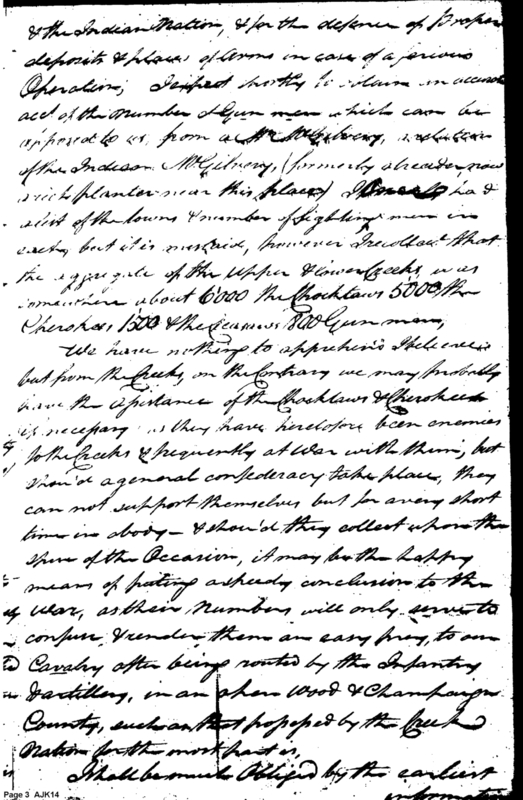 & the Indian Nation, & for the defence of Proper
deposits & places of Arms in case of a serious
Operation; I expect shortly to obtain an accurate
acct of the number of Gun men which can be
opposed to us, from a Mr McGilvery, a relation
of the Indian McGilvery, (formerly a trader, now
a rich planter near this place) I once had
a list of the towns & number of fighting men in
each, but it is mislaid, however I recollect that
the aggregate of the Upper & lower Creeks was
somewhere about 6'000 the Chocktaws 5000 the
Cherokees 1500 & the 800 Gun men,
We have nothing to apprehend I believe
but from the Creeks, on the Contrary we may probably
have the assistance of the Chocktaws & Cherokees
if necessary as they have heretofore been enemies
to the Creeks & frequently at War with them, but
shou'd a general confederacy take place, they
can not support themselves but for a very short
time in a body - & shou'd they collect upon the
spur of the Occasion, it may be the happy
means of puting a speedy conclusion to the
War, as their Numbers will only serve to
confuse & render them an easy prey, to our
Cavalry after being routed by the Infantry
& artillery, in an open Wood & Champaign
Country, such as that possessed by the Creek
Nation for the most part is,
I shall be much Obliged by the earliest
information
Page 3 AJK14